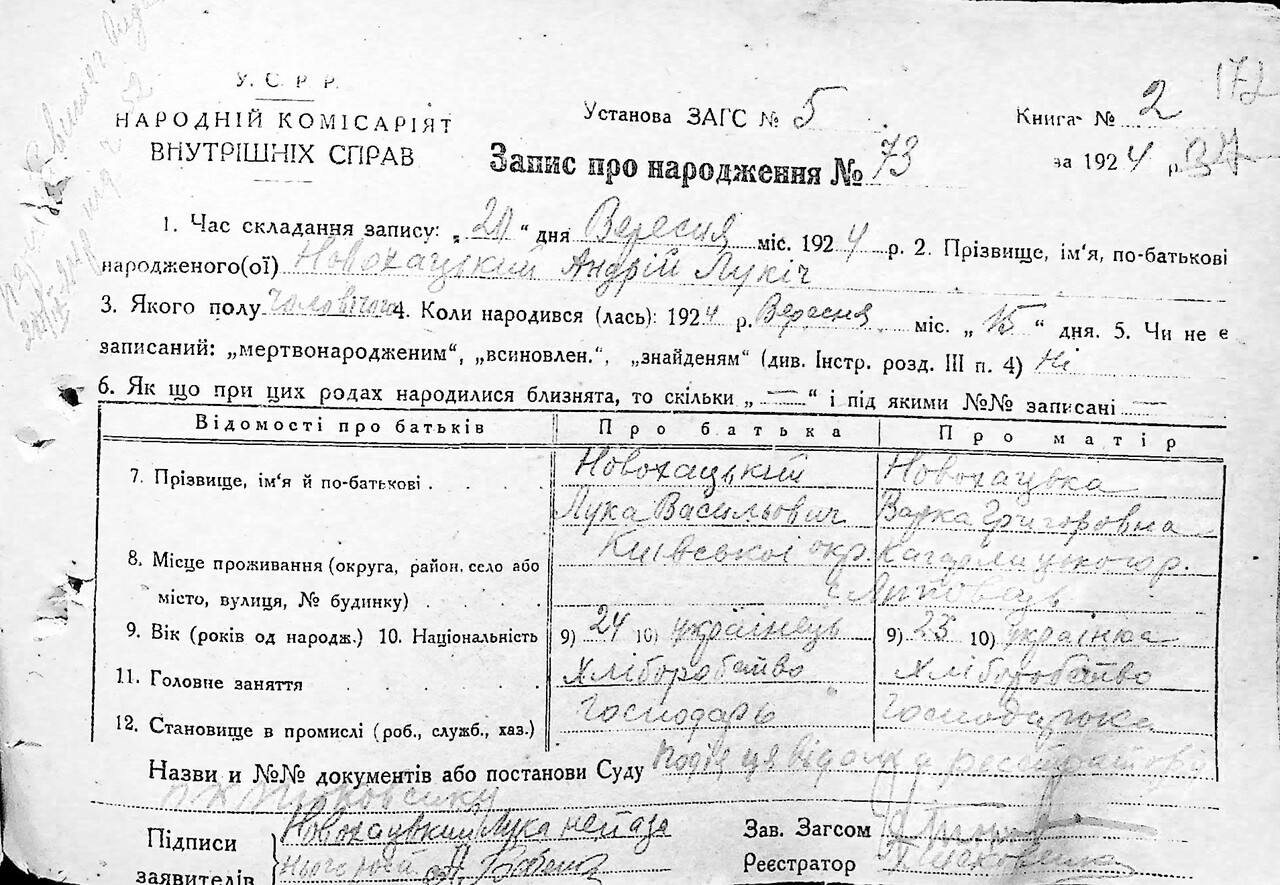 У. С. Р. Р.
НАРОДНІЙ КОМІСАРІЯТ
ВНУТРІШНІХ СПРАВ
Установа ЗАГС № 5
Книга № 2
172
Запис про народження № 73
за 1924 р.
1. Час складання запису: „20“ дня Вересня міс. 1924 р. 2. Прізвище, ім‘я, по-батькові
народженого(ої) Новохацький Андрій Лукіч
3. Якого полу Чоловічого 4. Коли народився (лась): 1924 р. Вересня міс. „15“ дня. 5. Чи не є
записаний: „мертвонародженим“, „всиновлен.“, „знайденям“ (див. Інстр. розд. III п. 4) Ні
6. Як що при цих родах народилися близнята, то скільки „—“ і під якими №№ записані —
Відомості про батьків Про батька Про матір
7. Прізвище, ім‘я й по-батькові . . . . Новохацький Новохацька
Лука Васильович Варка Григоровна
8. Місце проживання (округа, район, село або Київської окр. Кагарлицького р.
місто, вулиця, № будинку) . . . . с Липовець
9. Вік (років од народж.) 10. Національність 9) 24 10) українець 9) 23 10) українка
11. Головне заняття . . . . Хліборобство Хліборобство
12. Становище в промислі (роб., служб., хаз.) Господарь Господарька
Назви и №№ документів або постанови Суду Подія ця відома
Підписи Новохацький Лука
заявителів
Зав. Загсом
Реєстратор